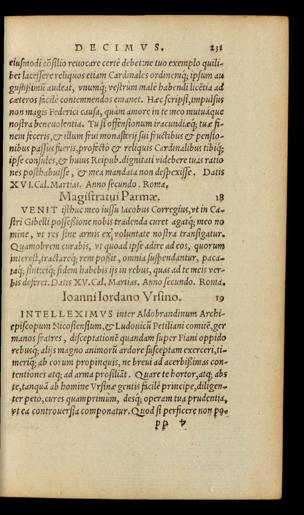 DECIMVS. 231
eiusmodi cōsilio reuocare certè debet: ne tuo exemplo quili-
bet lacessere reliquos etiam Cardinales ordinemq; ipsum au
gustissimū audeat, vnumq; vestrum malè habendi licētia ad
cæteros facilè contemnendos emanet. Hæc scripsi, impulsus
non magis Federici causa, quàm amore in te meo mutuáque
nostra beneuolentia. Tu si offensionum iracundiæq; tuæ fi-
nem feceris, & illum frui monasterij sui fructibus & pensio-
nibus passus fueris, profectò & reliquis Cardinalibus tibiq;
ipse consules, & huius Reipub. dignitati videbere tuas ratio
nes posthabuisse, & mea mandata non despexisse. Datis
XVI. Cal. Martias. Anno secundo. Roma.
Magistratui Parmæ. 18
VENIT isthuc meo iussu Iacobus Corregius, vt in Ca-
stri Gibelli possessione nobis tradenda curet agatq; meo no
mine, vt res sine armis ex voluntate nostra transigatur.
Quamobrem curabis, vt quoad ipse adire ad eos, quorum
interest, tractareq; rem possit, omnia suspendantur, paca-
taq; sint: eiq; fidem habebis ijs in rebus, quas ad te meis ver-
bis deferet. Datis XV. Cal. Martias. Anno secundo. Roma.
Ioanni Iordano Vrsino. 19
INTELLEXIMVS inter Aldobrandinum Archi-
episcopum Nicosiensium, & Ludouicū Petiliani comitē, ger
manos fratres, disceptationē quandam super Fiani oppido
rebusq; alijs magno animorū ardore susceptam exerceri, ti-
meriq; ab eorum propinquis, ne breui ad acerbissimas con-
tentiones atq; ad arma prosiliāt. Quare te hortor, atq; abs
te, tanquā ab homine Vrsinæ gentis facilè principe, diligen-
ter peto, cures quamprimùm, desq; operam tua prudentia,
vt ea controuersia componatur. Quod si perficere non po-
pp 4